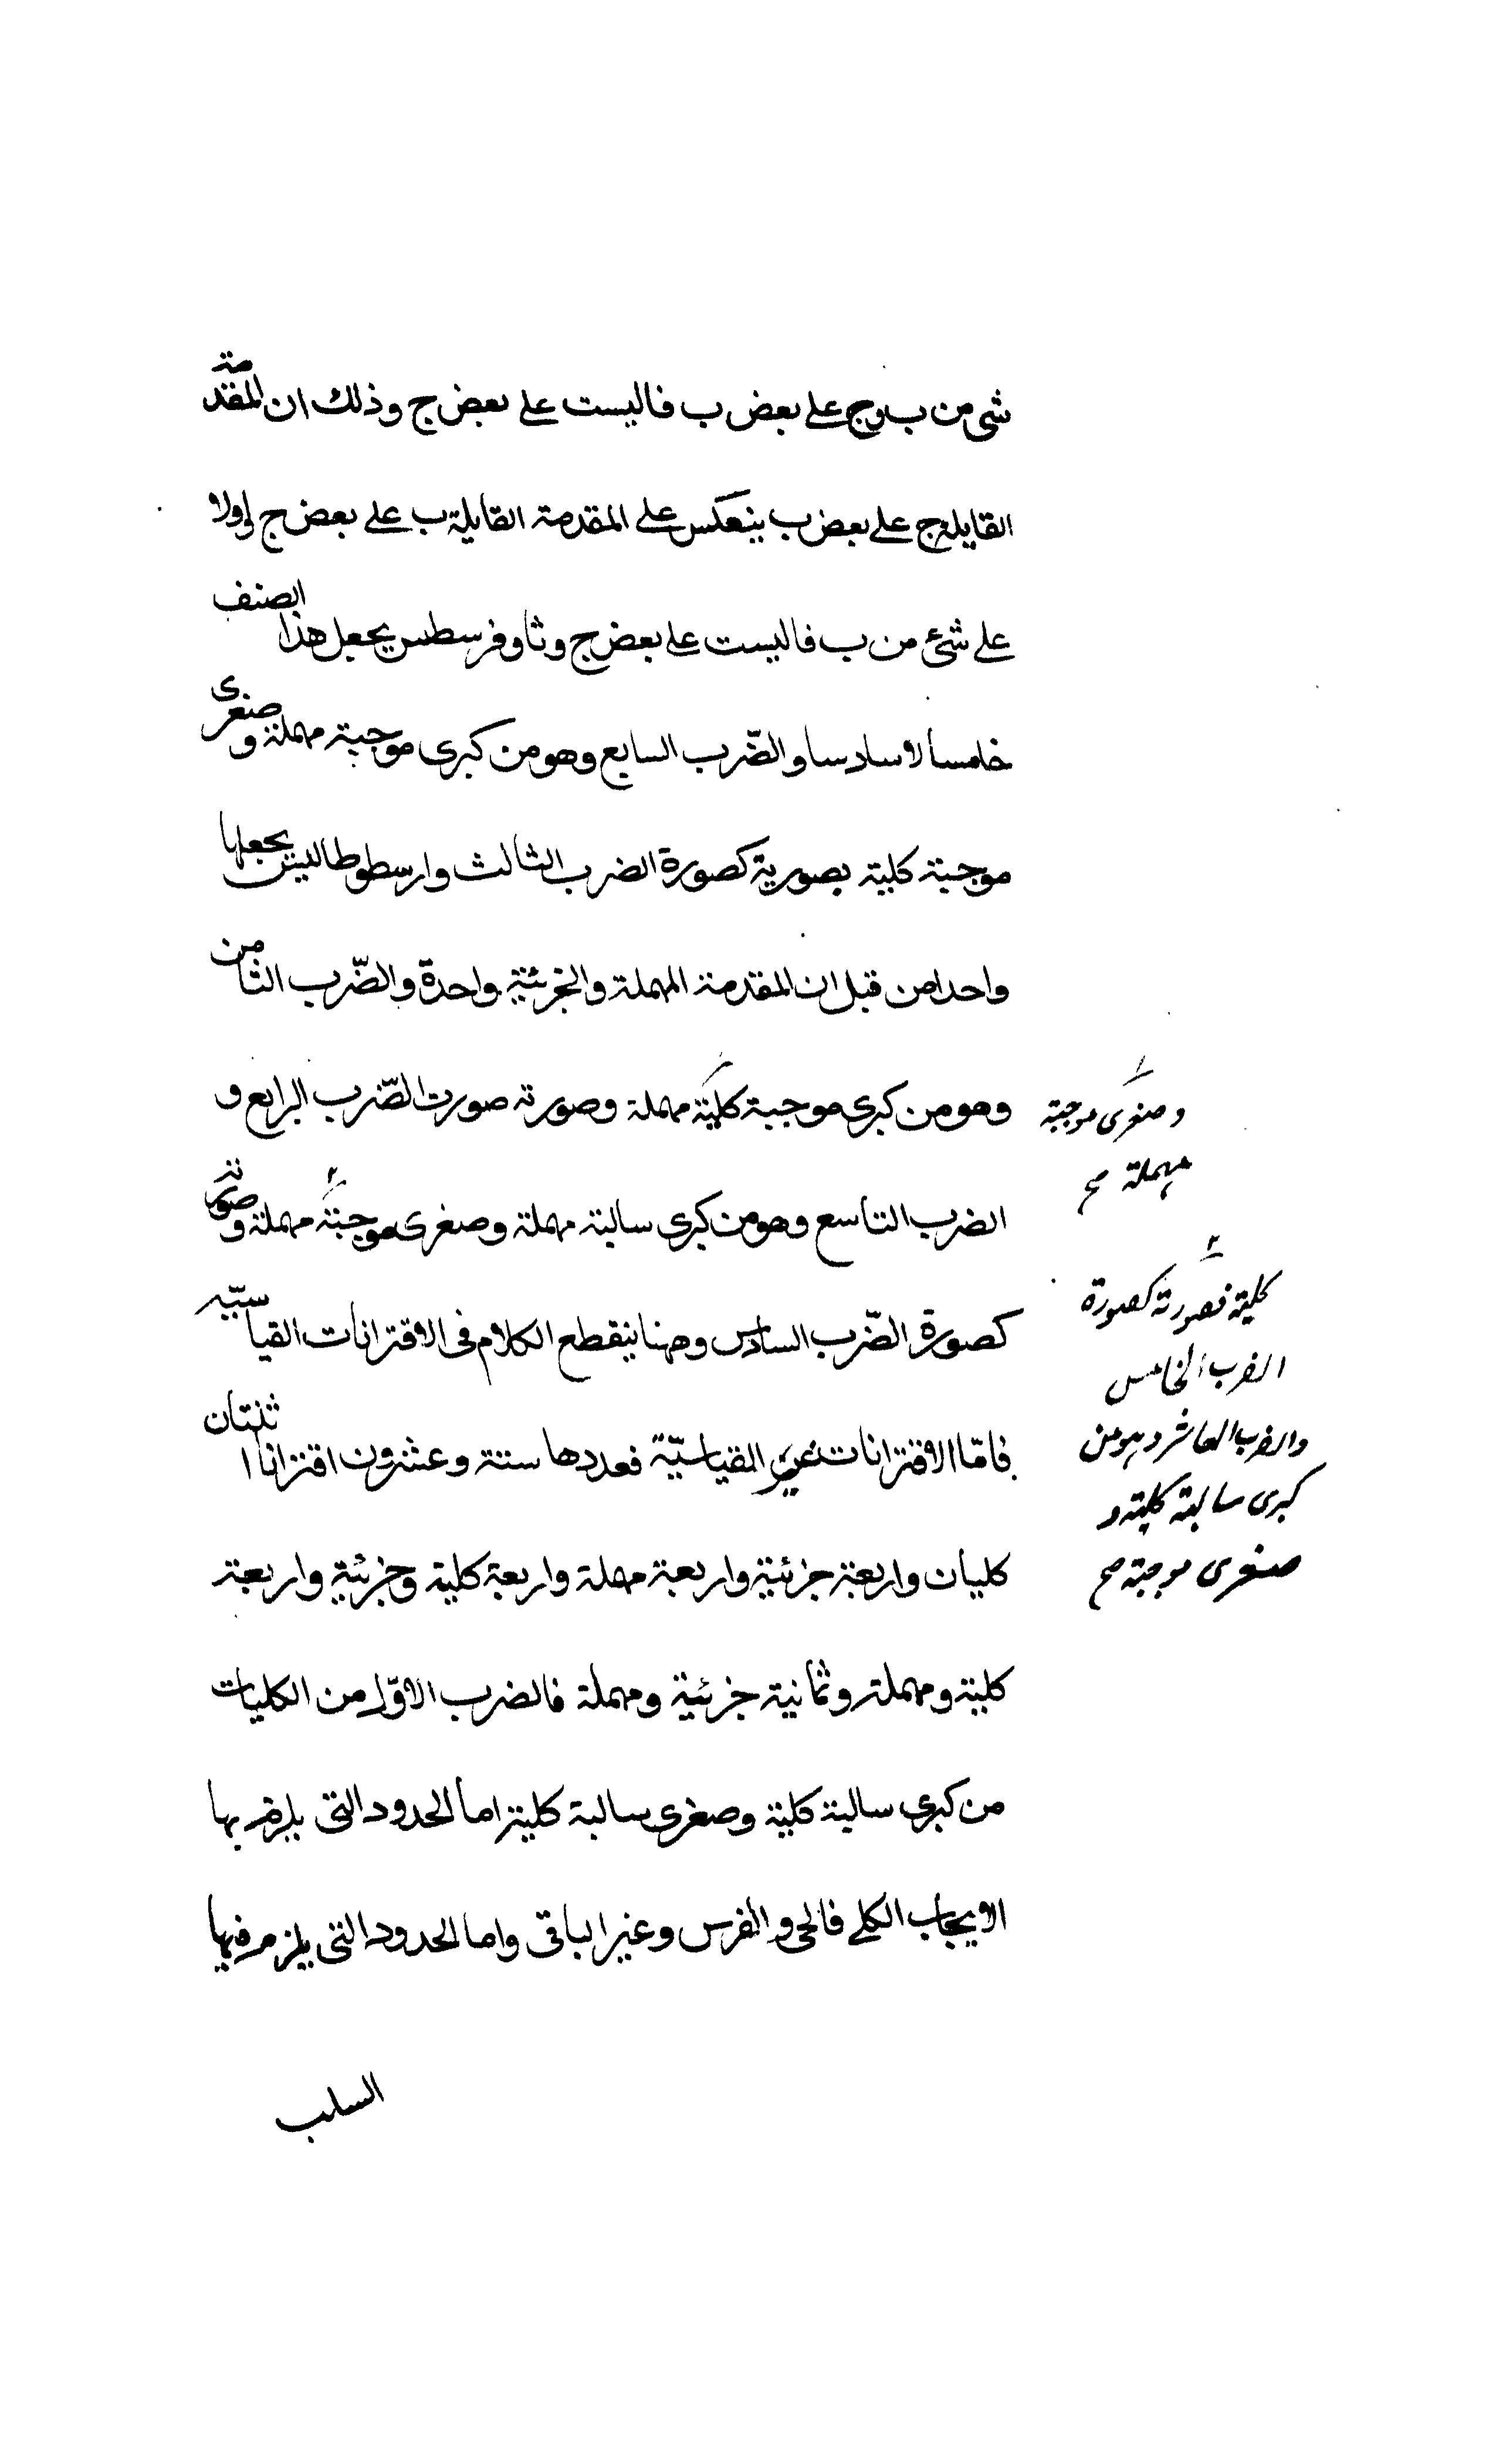 شى من ب وج على بعض ب فا ليست على بعض ج وذلك ان المقدمة
القايلة ج على بعض ب ينعكس على المقدمة القايلة ب على بعض ج واولا
على شئ من ب فا ليست على بعض ج وثاوفرسطس يجعل هذا الصنف
خامسا لا سادسا والضّرب السابع وهو من كبرى موجبة مهملة وصغرى
موجبة كلية بصورية كصورة الضرب الثالث وارسطوطاليس يجعلها
واحدا من قبل ان المقدمة المهملة والجزئية واحدة والضّرب الثامن
وهو من كبرى موجبة كلية مهملة وصورته صورت الضّرب الرابع و
الضرب التاسع وهو من كبرى سالبة مهملة وصغرى موجبة مهملة وصورته
كصورة الضّرب السادس وههنا ينقطع الكلام فى الاقترانات القياسيّه
فامّا الاقترانات غير القياسيّة فعددها ستة وعشرون اقترانا ثنتان
كليان واربعة جزئية واربعة مهملة واربعة كلية وجزئية واربعة
كلية ومهملة وثمانية جزئية ومهملة فالضرب الاوّل من الكليات
من كبرى سالبة كلية وصغرى سالبة كلية اما الحدود التى يلزم بها
الايجاب الكلى فالحى والفرس وغير الباقى واما الحدود التى يلزم فيها
السلب
وصغرى موجبة
مهملة صح
كلية فصورته كصورة
الضرب الخامس
والضرب العاشر وهو من
كبرى سالبة كلية و
صغرى موجبة صح